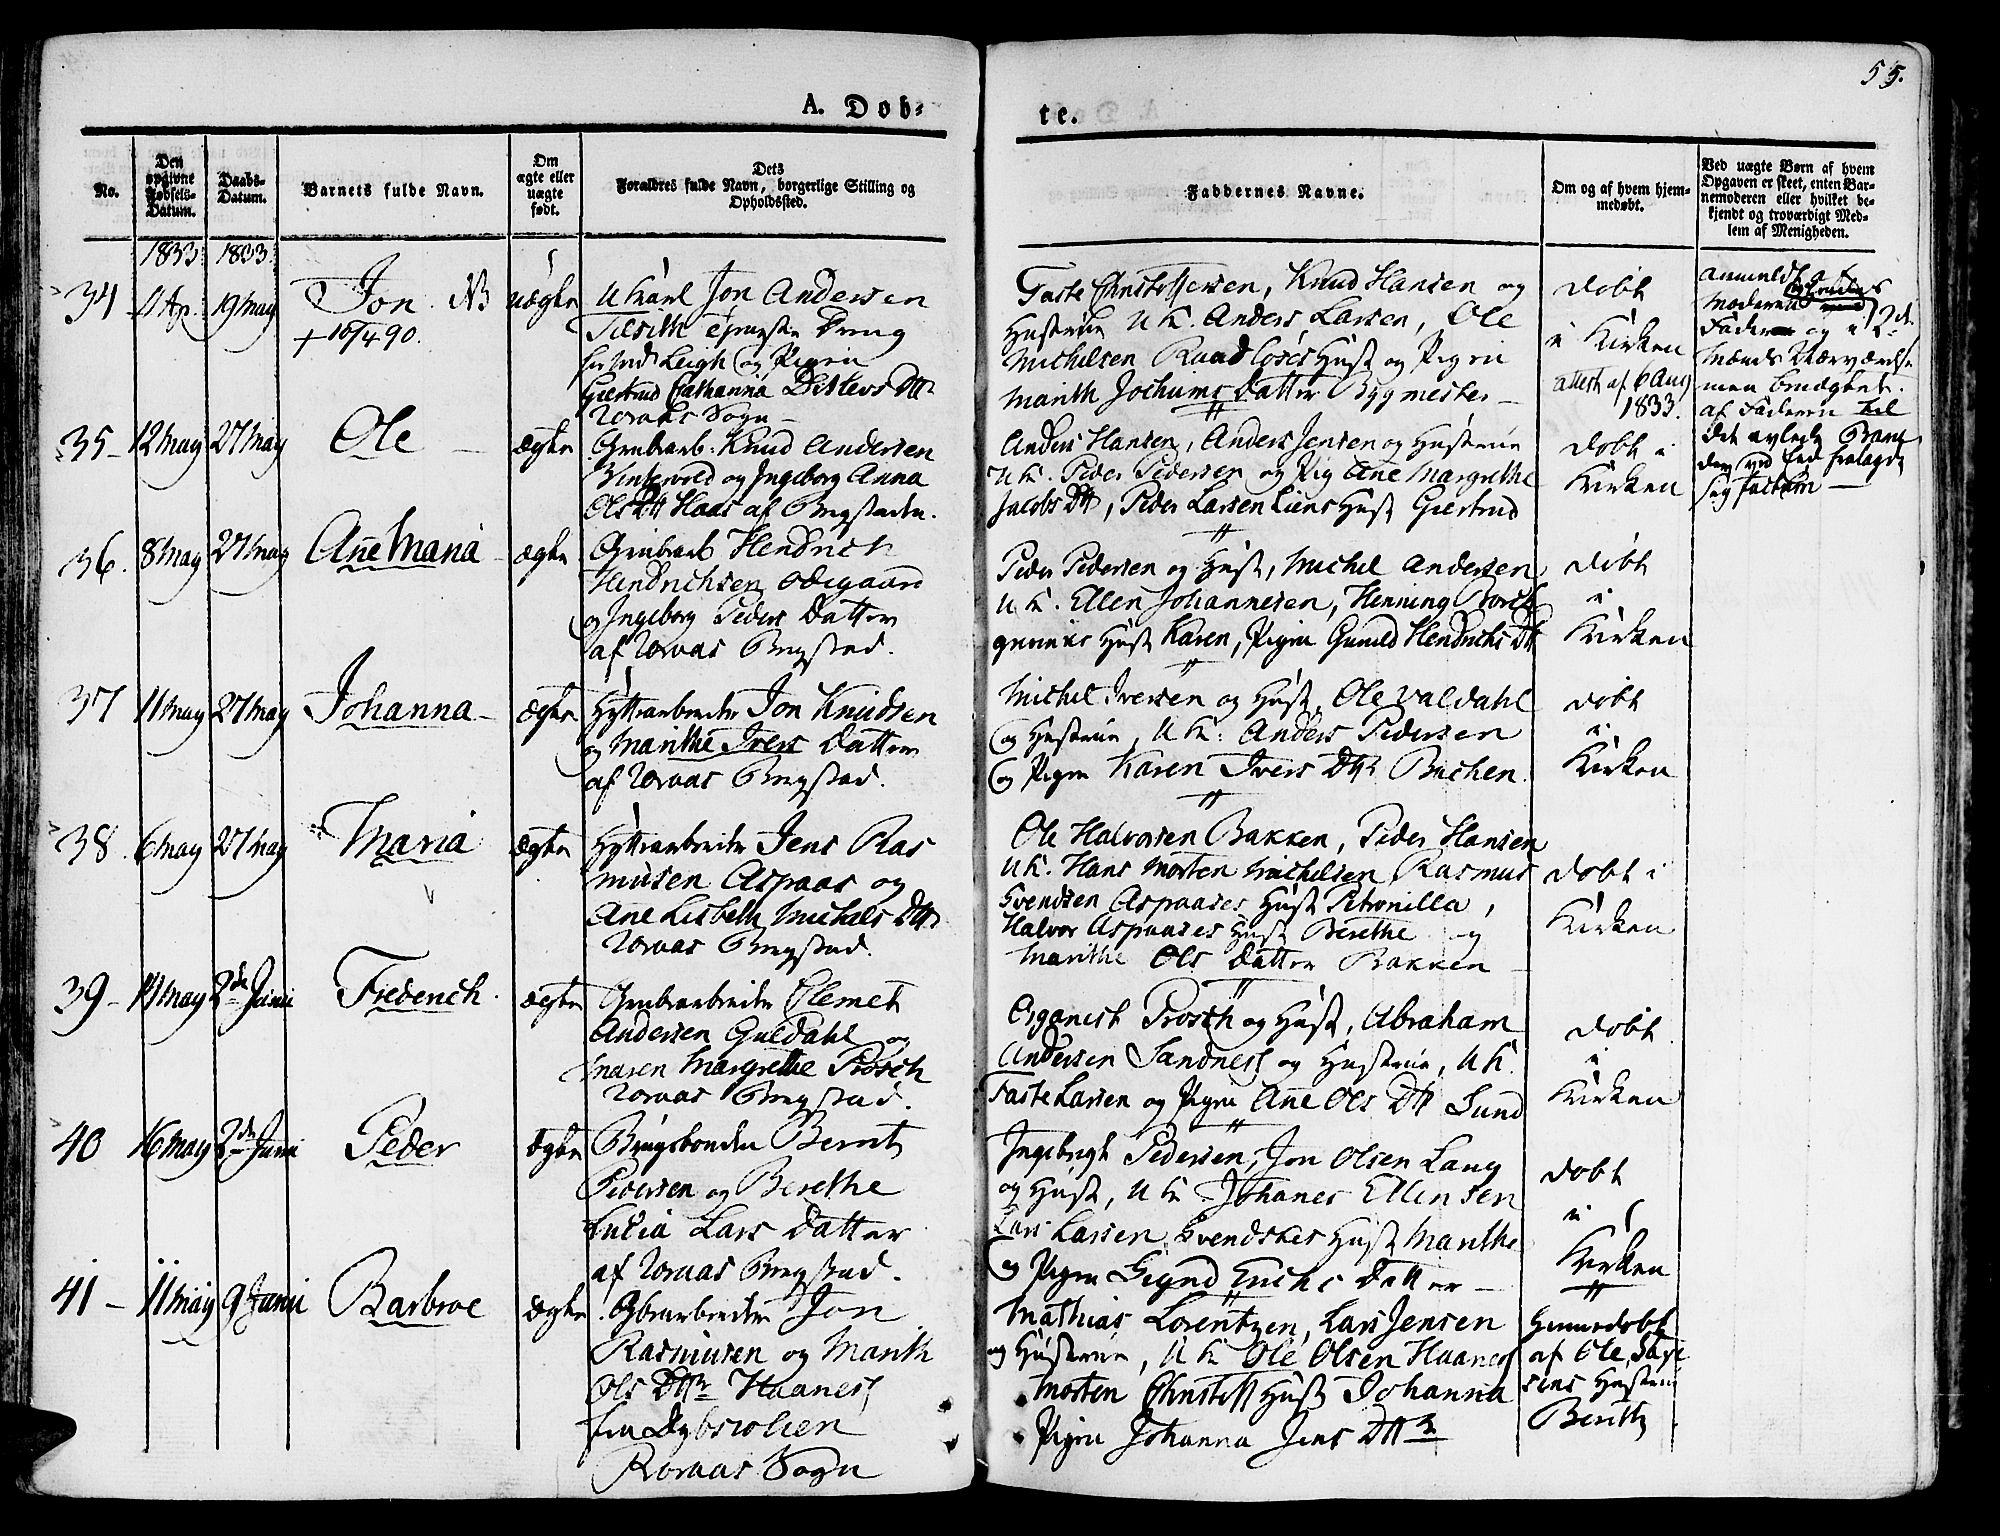 55.
A. Døb-
te.
No.
Den opgivne Fødsels-Datum.
Daabs-Datum.
Barnets fulde Navn.
Om ægte eller uægte født.
Dets Forældres fulde Navn, borgerlige Stilling og Opholdssted.
Faddernes Navne.
Om og af hvem hjemmedøbt.
Ved uægte Børn af hvem Opgaven er skeet, enten Barnemoderen eller hvilket bekjendt og troværdigt Medlem af Menigheden.
1833 1833
34 11 Ap. 19 May Jon NB uægte
+ 10/4 90.
Ukarl Jon Andersen
Tilsith
Leigh og Pigen
Giertrud Cathanna Ditlevs Dtr
Røraas Sogn
Faste Christoffersen, Knud Hansen og
Hustrue UK. Anders Larsen, Ole
Michelsen Hust og Pigen
Marith Jochums Datter Bygmester
døbt
i Kirken
attest af 6 Aug
1833.
anmeldt af
Moderen
Fader og
men benægtet
af Faderen til
det avlede Barn
35 12 May 27 May Ole ægte
Grubearb: Knud Andersen
Vintervold og Ingeborg Anna
Ols Dtr Haas af Bergstaden.
Anders Hansen, Anders Jensen og Hustrue
UK. Peder Pedersen og Pig Ane Margrethe
Jacobs Dtr, Peder Larsen Liens Hust Giertrud
døbt i
Kirken
36. 8 May 27 May Ane Maria ægte
Grubearb Hendrich
Hendrichsen Ødegaard
og Ingeborg Peders Datter
af Røraas Bergstad.
Peder Pedersen og Hust, Michel Andersen
UK. Ellen Johannesen, Henning
Hust Karen, Pigen Gunild Hendrichs Dtr
døbt
i
Kirken
37 11 May 27 May Johanna ægte
Hyttearbeider Jon Knudsen
og Marithe Ivers Datter
af Røraas Bergstad.
Michel Iversen og Hust, Ole Valdahl
og Hustrue, UK: Anders Pedersen
og Pigen Karen Ivers Dtr Bachen.
døbt
i
Kirken
38. 6 May 27 May Maria ægte
Hyttearbeider Jens Ras
musen Aspaas og
Ane Lisbeth Michels Dtr
Røraas Bergstad.
Ole Halvorsen Bakken, Peder Hansen
UK. Hans Morten Michelsen Rasmus
Svendsen Aspaases Hust Petronilla,
Halvor Aspaases Hust Berethe og
Marithe Ols Datter Bakken
døbt i
Kirken
39 - 14 May 2de Juni Frederich. ægte
Grubearbeider Clemet
Andersen Guldahl og
Maren Margrethe Prosch
Røraas Bergstad.
Organist Prosch og Hust, Abraham
Andersen Sandness og Hustrue, UK.
Faste Larsen og Pigen Ane Ols Dtr Sund
døbt
i
Kirken
40 16 May 2de Juni Peder ægte
Brugsbonden Bernt
Pedersen og Berethe
Lucia Lars Datter
af Røraas Bergstad.
Ingebrigt Pedersen, Jon Olsen Lang
og Hust, UK Johanes Ellensen
Lars Larsen Svendskes Hust Marithe
og Pigen Sigrid Erichs Datter
døbt
i
Kirken
41 - 11 May 9 Juni Barbroe ægte
Grbearbeider Jon
Rasmusen og Marith
Ols Dtr Haaness
fra Dybsiølien
Røraas Sogn
Mathias Lorentzen, Lars Jensen
og Hustrue, UK Ole Olsen Haaness
Morten Christoff Hust Johanna
Pigen Johanna Jens Dtr
hiemedøbt
af Ole
Hustrue
Berith